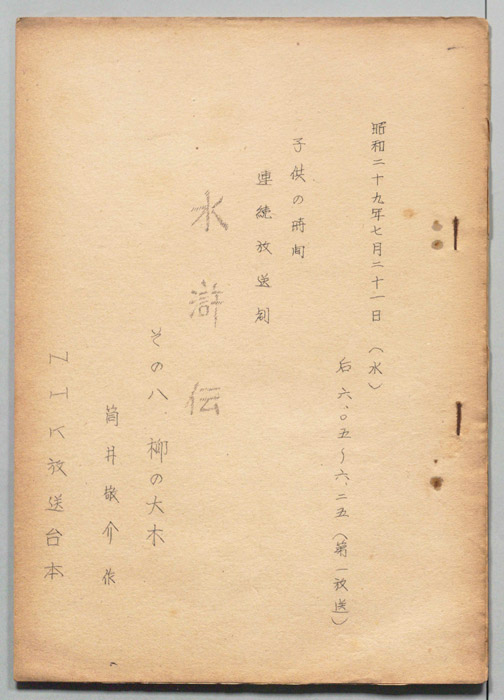 昭和二十九年七月二十一日(水)
后六.〇五〜六.二五(第一放送)
子供の時間
連続放送劇
水滸伝
その八 柳の大木
筒井敬介 作
NHK放送台本